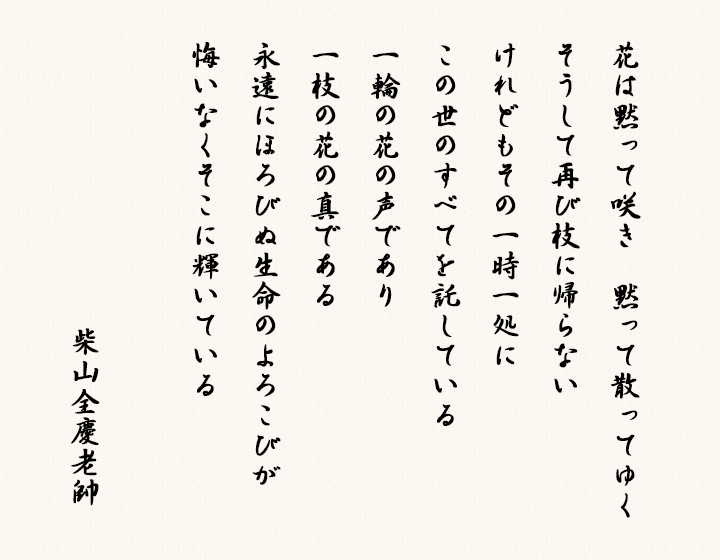 花は黙って咲き　黙って散ってゆく
そうして再び枝に帰らない
けれどもその一時一処に
この世のすべてを託している
一輪の花の声であり
一枝の花の真である
永遠にほろびぬ生命のよろこびが
悔いなくそこに輝いている
柴山全慶老師